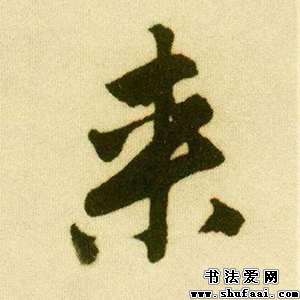 来
书法爱网
www.shufaai.com